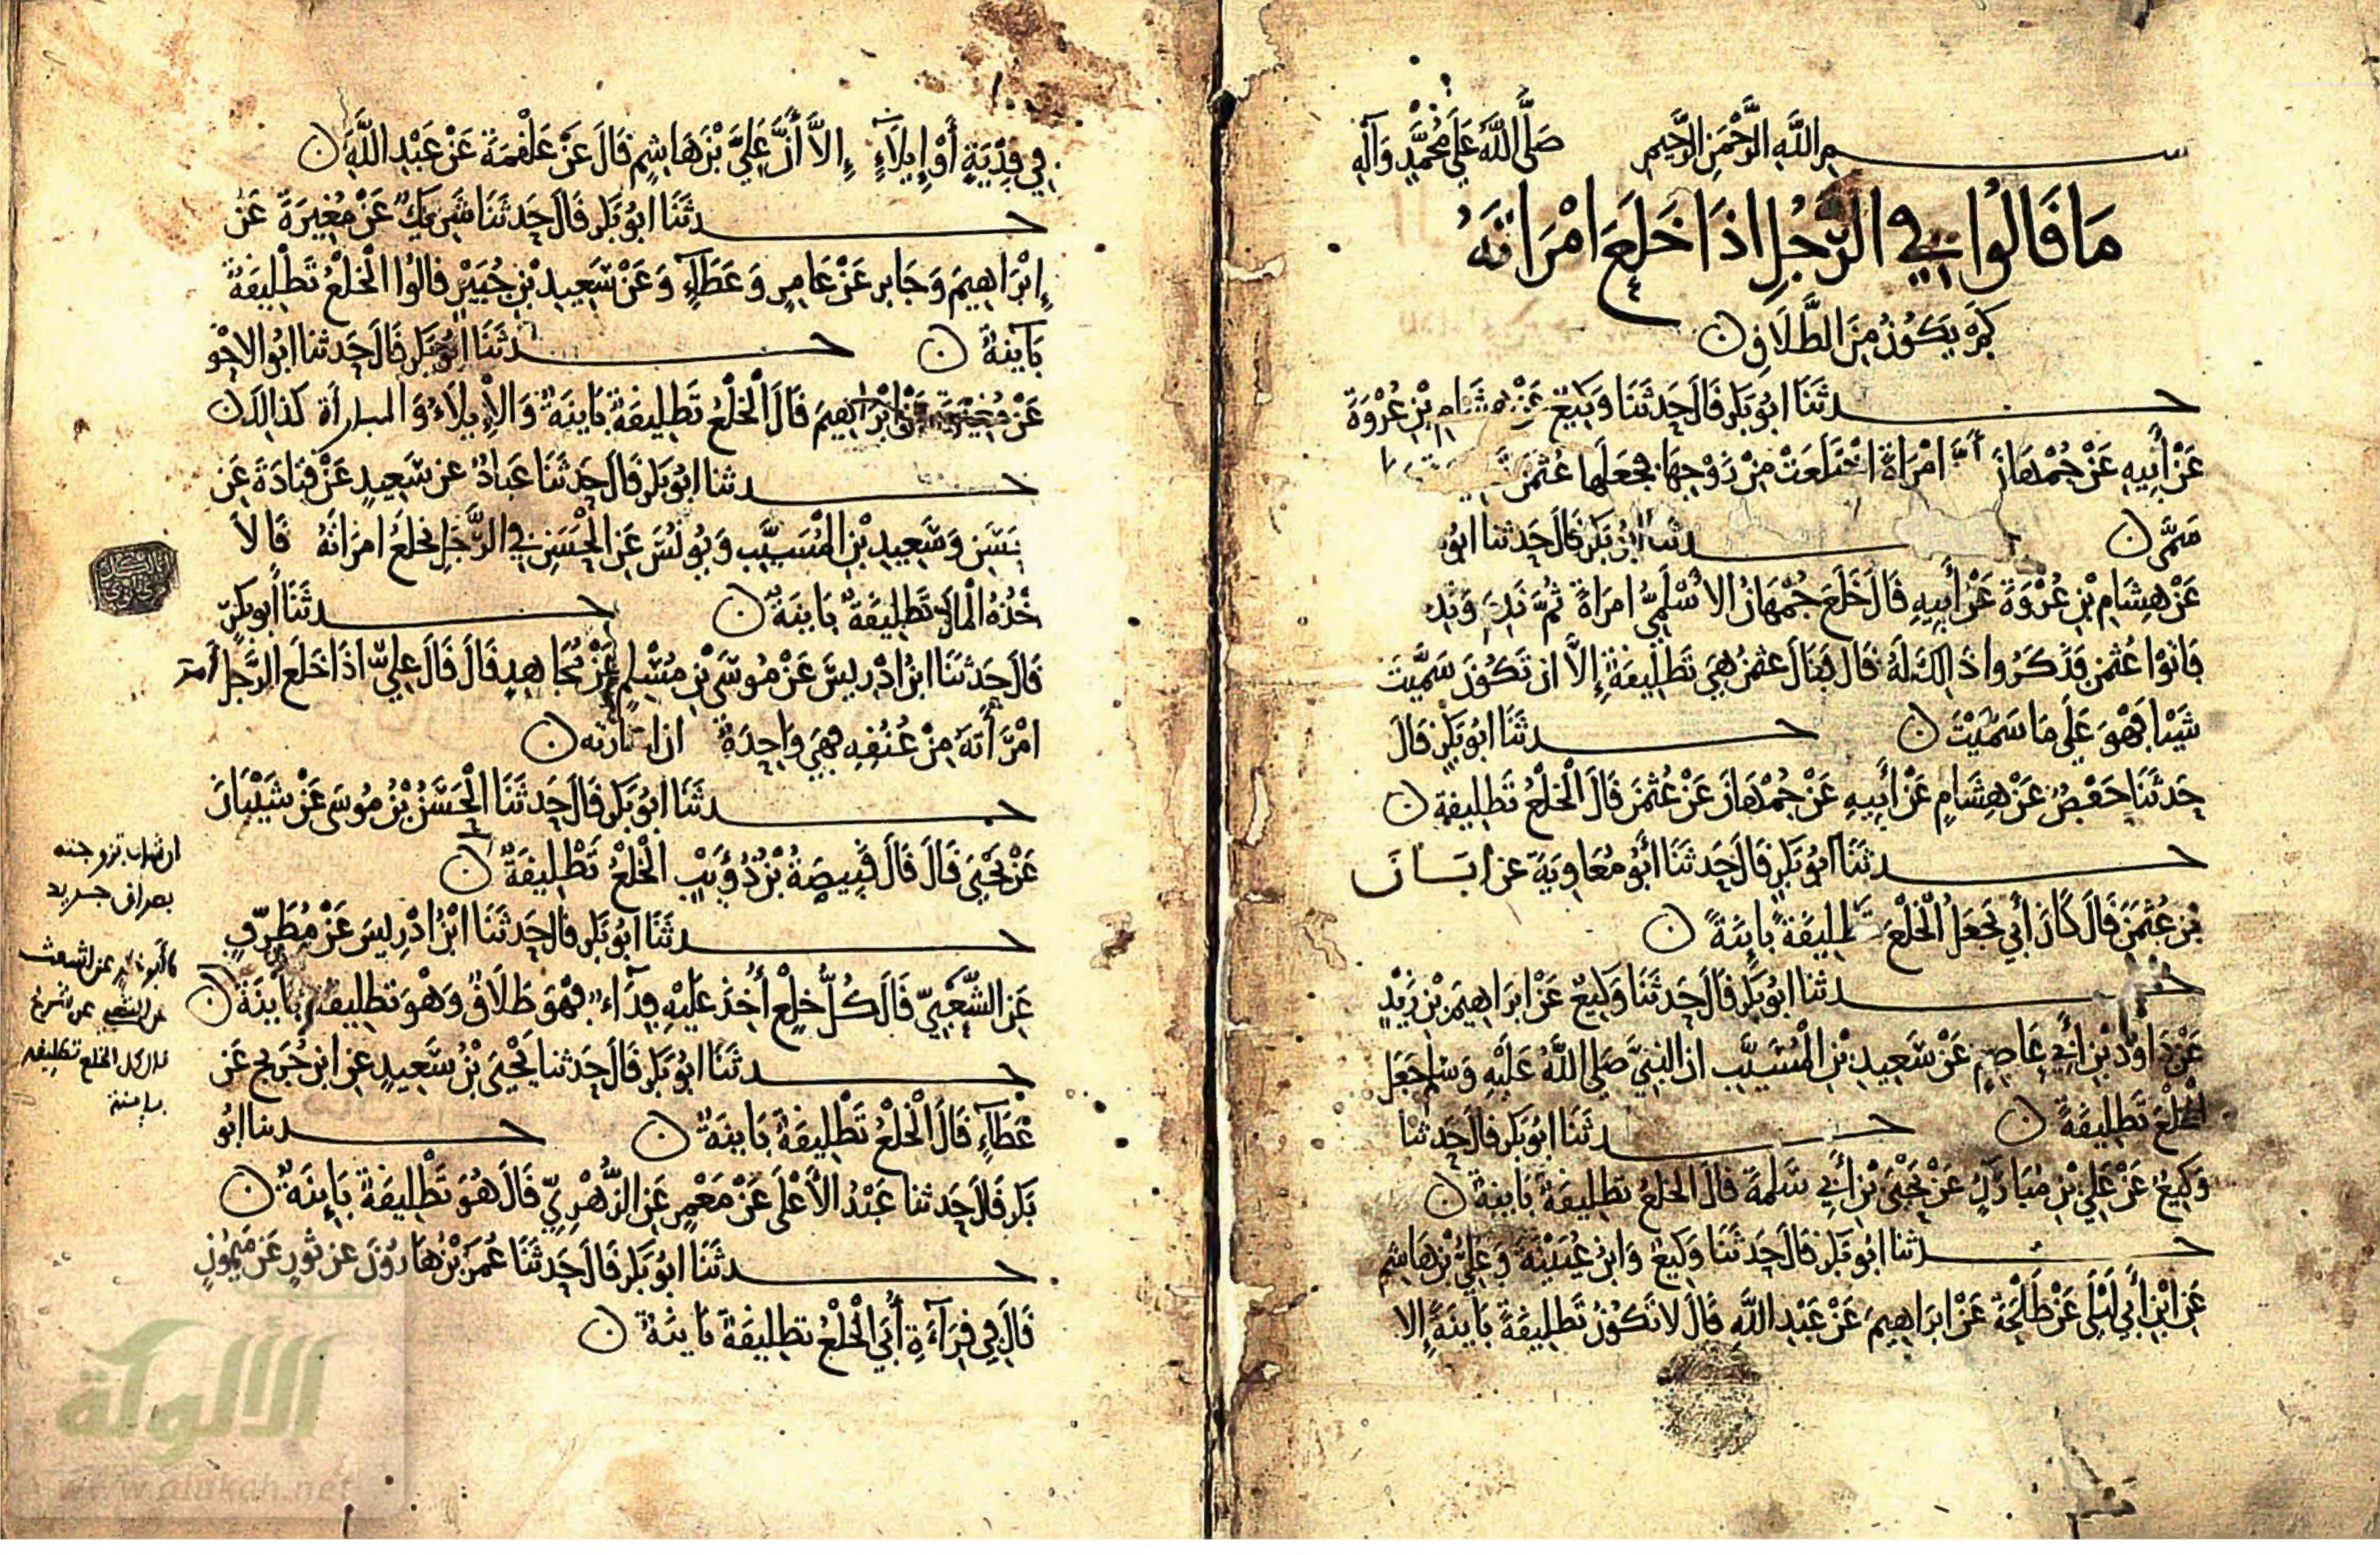 بسم اللَّهِ الرَّحْمَنِ الرَّحِيمِ صَلَّى اللَّهُ عَلَى مُحَمَّدٍ وَآلِهِ
مَا قَالُوا فِي الرَّجُلِ اذَا خَلَعَ امْرَاتَهُ
كَمْ يَكُونُ مِنَ الطَّلَاقِ
حدثَنَا ابُو بَكرٍ قَالَ حَدثَنَا وَكِيعٌ عَنْ هِشَامِ بْنِ عُرْوَةَ
عَنْ أَبِيهِ عَنْ جُمْهَانَ أنَّ امْرَاةً اخْتَلَعَتْ مِنْ زَوْجِهَا فجَعَلَها عُثْمَنُ
سَمَّى حدثنا ابُو بَكرٍ قَالَ حَدثنا ابُو
عَنْ هِشَامِ بْنِ عُرْوَةَ عَنْ أَبِيهِ قَالَ خَلَعَ جُمْهَانُ الاسْلَمِيُّ امرَاةً ثُمَّ نَدِمَ وَنَدِ
فَاتوْا عُثمنَ فَذَكَرُوا ذَالِكَ لَهُ قَالَ فَقَالَ عثمنُ هِيَ تَطْلِيقَةٌ إِلَّا ان تَكُونَ سَمَّيْتَ
شَيْئا فَهْوَ عَلَى مَا سَمَّيْتَ حدثَنَا ابُو بَكرٍ قَالَ
حَدثَنَا حَفْصٌ عَنْ هِشَامٍ عَنْ أَبِيهِ عَنْ جُمْهَانَ عَنْ عُثْمَنَ قَالَ الْخلْعُ تَطلِيقة
حدثَنَا ابُو بَكرٍ قَالَ حَدثَنَا أَبُو مُعَاوِيَةَ عن ابَانَ
بْنِ عُثْمَنَ قَالَ كَانَ أَبِي يَجعَلُ الْخلْعَ تَطلِيقَةً بَايِنَةً
حدثنا ابُو بَكرٍ قَالَ حَدثَنَا وَكِيعٌ عَنْ ابرَاهِيمَ بْنِ يَزِيْدَ
عَنْ دَاوُدَ بْنِ أَبِي عَاصِمٍ عَنْ سَعِيدِ بْنِ الْمُسَيَّبِ ان النبِيَّ صَلى اللَّهُ عَلَيْهِ وَسَلم جَعَلَ
الْخلْعَ تَطلِيقَةً حدثَنَا ابُو بَكرٍ قَالَ حَدثنا
وَكِيعٌ عَنْ عَلِيِّ بْنِ مُبَارَكٍ عَنْ يَحْيَى بْنِ أَبِي سَلَمَةَ قالَ الخلعُ تطلِيقَةٌ بَاينةٌ
حدثنا ابُو بَكرٍ قَالَ حَدثَنَا وَكِيعٌ وَابنُ عُيَيْنَةَ وَعَلِيُّ بْنُ هَاشِمٍ
عَنِ ابْنِ أَبِي لَيْلَى عَنْ طَلْحَةَ عَنْ ابرَاهِيمَ عَنْ عَبْدِ اللَّهِ قَالَ لا تَكُونُ تَطْلِيقَةً بَايِنَةً إِلا
فِي فِدْيَةٍ أَوْ إِيلَاءٍ إِلاَّ أَنَّ عَلِيَّ بْنَ هَاشِمٍ قَالَ عَنْ عَلْقَمَةَ عَنْ عَبْدِ اللَّهِ
حدثَنَا ابُو بَكرٍ قَالَ حَدثَنَا شَرِيكٌ عَنْ مُغِيرَةَ عَنْ
إِبْرَاهِيمَ وَجَابرٍ عَنْ عَامِرٍ وَعَطَاءٍ وَعَنْ سَعِيدِ بْنِ جُبَيْرٍ قالُوا الْخلْعُ تَطْلِيقَةٌ
بَايِنةٌ حدثَنَا ابُو بَكرٍ قَالَ حَدثنا ابُو الاحْو
عَنْ مُغِيرَةَ عَنْ إِبْرَاهِيمَ قَالَ الْخلْعُ تَطلِيقَةٌ بَايِنَةٌ وَالاِيلَاءُ وَالمباراةُ كذالكَ
حدثنا ابُو بَكرٍ قَالَ حَدثَنَا عَبادٌ عن سَعِيدٍ عَنْ قتَادَةَ عَن
حَسَنٍ وَسَعِيدِ بْنِ الْمُسَيَّبِ وَيُونُسَ عَنِ الْحَسَنِ فِي الرَّجُلِ يخلَعُ امرَاتَهُ قَالا
خْذُهُ الْمالَ تَطْلِيقَةٌ بَاينَةٌ حدثَنَا أَبُو بَكرٍ
قَالَ حَدثَنَا ابنُ ادْرِيسَ عَنْ مُوسَى بْنِ مُسْلِمٍ عَنْ مُجَاهِدٍ قَالَ قَالَ عَلِيٌّ اذَا خَلَعَ الرَّجُل أمر
امْرَأَتهُ مِنْ عُنُقِهِ فهِيَ وَاحِدَةٌ ان اختارته
حدثَنَا ابُو بَكرٍ قَالَ حَدثَنَا الْحَسَنُ بْنُ مُوسَى عَنْ شَيْبَانَ
عَنْ يَحْيَى قَالَ قَالَ قَبِيصَةُ بْنُ ذُؤَيْبٍ الْخلْعُ تَطْلِيقَةٌ
حدثَنَا ابُو بَكرٍ قَالَ حَدثَنَا ابْنُ ادْرِيسَ عَنْ مُطَرِّفٍ
عَنِ الشَّعْبِيِّ قَالَ كُلُّ خلعٍ أُخِذَ عَلَيْهِ فِدَاءٌ فهْوَ طَلَاقٌ وَهْوَ تطلِيقةٌ بَاينَةٌ
حدثَنَا ابُو بَكرٍ قَالَ حَدثنا يَحْيَى بْنُ سَعِيدٍ عنِ ابنِ جُرَيجٍ عَن
عَطَاءٍ قَالَ الْخلْعُ تَطْلِيقَةٌ بَاينَةٌ حدثنا ابُو
بَكرٍ قَالَ حَدثنا عَبْدُ الاَعْلَى عَنْ مَعْمَرٍ عَنِ الزُّهْرِيِّ قَالَ هُوَ تَطْلِيقَةٌ بَايِنَةٌ
حدثَنَا ابُو بَكرٍ قَالَ حَدثَنَا عُمَرُ بْنُ هَارُونَ عن ثورٍ عَنْ مَيْمُونٍ
قَالَ فِي قِرَاءَةِ أُبَيٍّ الْخلْعُ تطلِيقَةٌ بَايِنَةٌ
بايسة
الألوكة
www.alukah.net